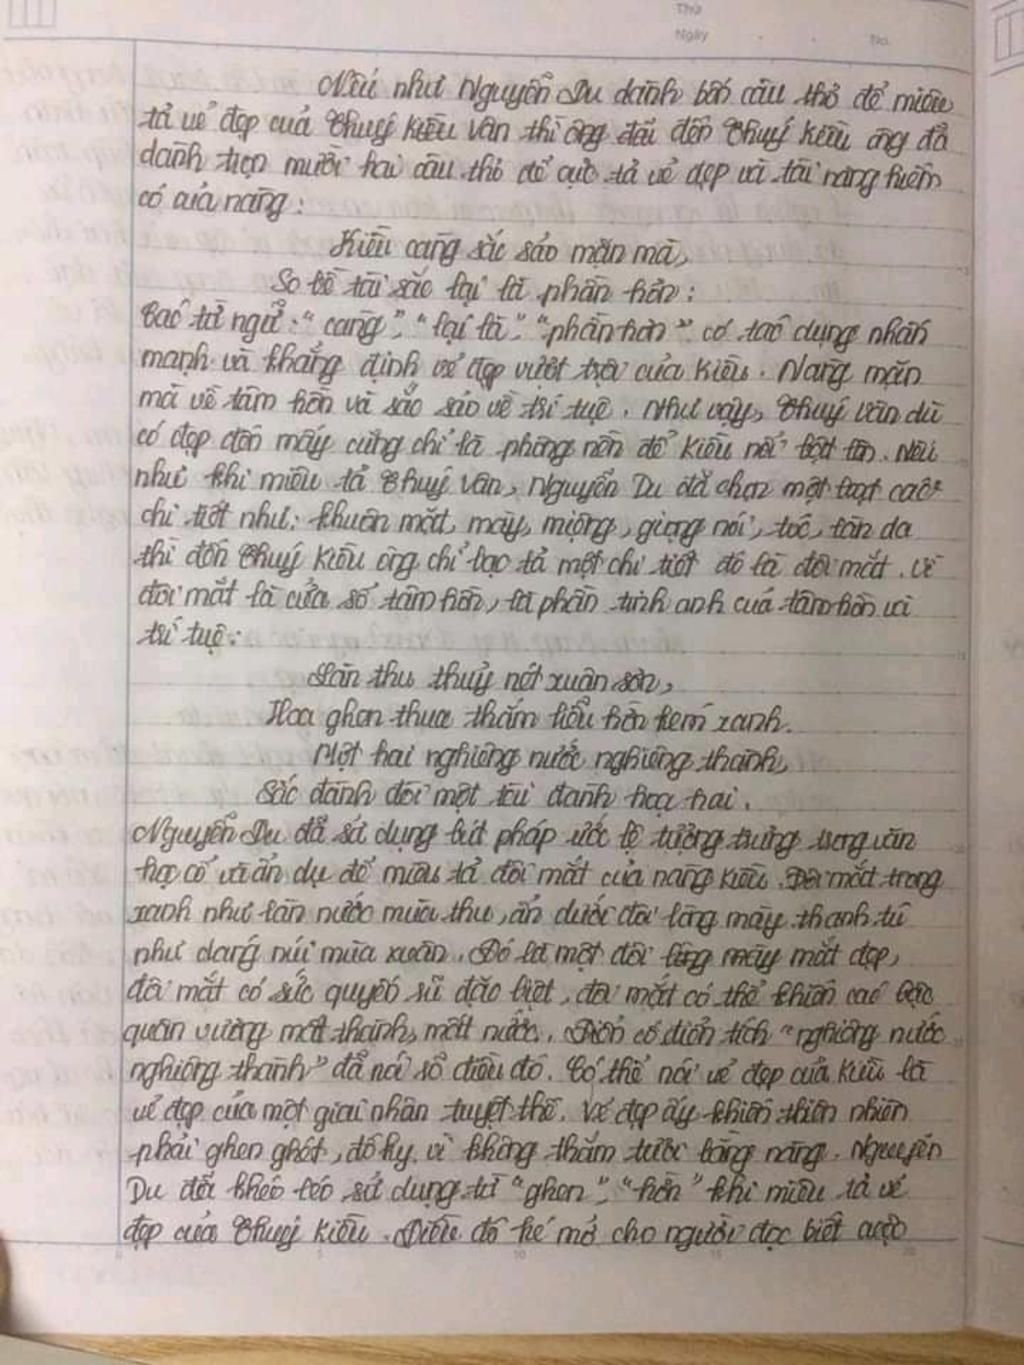 Thứ
Ngày
No.
Nếu như Nguyễn Du dành bốn câu thơ để miêu
tả vẻ đẹp của Thuý Kiều Vân thì ông đãi đến Thuý Kiều ông đã
dành trọn mười hai câu thơ để cực tả vẻ đẹp và tài năng hiếm
có của nàng:
Kiều càng sắc sảo mặn mà,
So bề tài sắc lại là phần hơn:
Các từ ngữ: "càng", "lại là", "phần hơn" có tác dụng nhấn
mạnh và khẳng định vẻ đẹp vượt trội của Kiều. Nàng mặn
mà về tâm hồn và sắc sảo về trí tuệ. Như vậy, Thuý Vân dù
có đẹp đến mấy cũng chỉ là phông nền để Kiều nổi bật lên. Nếu
như khi miêu tả Thuý Vân, Nguyễn Du đã chọn một loạt các
chi tiết như: khuôn mặt, mày, miệng, giọng nói, tóc, làn da
thì đến Thuý Kiều ông chỉ tạc tả một chi tiết đó là đôi mắt. Vì
đôi mắt là cửa sổ tâm hồn, là phần tinh anh của tâm hồn và
trí tuệ:
Làn thu thuỷ nét xuân sơn,
Hoa ghen thua thắm liễu hờn kém xanh.
Một hai nghiêng nước nghiêng thành,
Sắc đành đòi một tài đành hoạ hai.
Nguyễn Du đã sử dụng bút pháp ước lệ tượng trưng trong văn
học cổ và ẩn dụ để miêu tả đôi mắt của nàng Kiều. Đôi mắt trong
xanh như làn nước mùa thu, ẩn dưới đôi lông mày thanh tú
như dáng núi mùa xuân. Đó là một đôi lông mày mắt đẹp,
đôi mắt có sức quyến rũ đặc biệt, đôi mắt có thể khiến các bậc
quân vương mất thành, mất nước. Điển cố điển tích "nghiêng nước
nghiêng thành" đã nói rõ điều đó. Có thể nói vẻ đẹp của Kiều là
vẻ đẹp của một giai nhân tuyệt thế. Vẻ đẹp ấy khiến thiên nhiên
phải ghen ghét, đố kỵ vì không thắm tươi bằng nàng. Nguyễn
Du đã khéo léo sử dụng từ "ghen", "hờn" khi miêu tả vẻ
đẹp của Thuý Kiều. Điều đó hé mở cho người đọc biết được